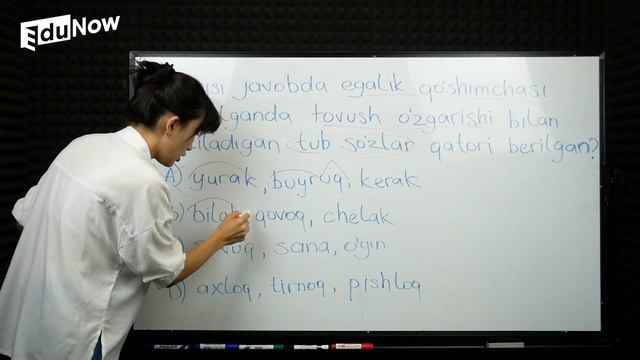 EduNow
javobda egalik qo'shimchasi
tovush o'zgarishi bilan
tub so'zlar qatori berilgan?
A) yurak, buyruq, kerak
qovoq, chelak
sana, o'yin
D) axloq, tirnoq, pishloq